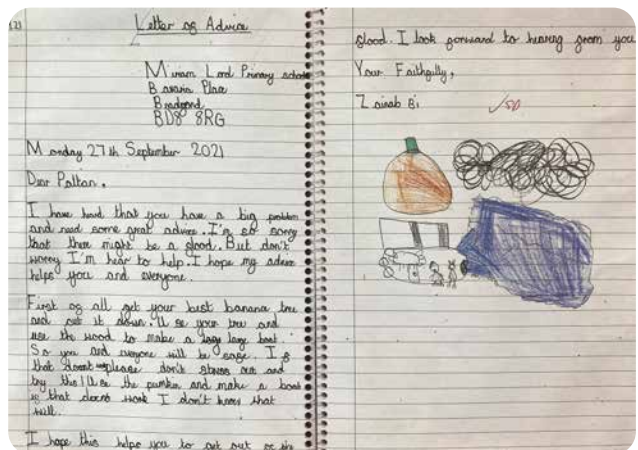 23
Letter of Advice
Miriam Lord Primary school
Bavaria Place
Bradford
BD8 8RG
Monday 27th September 2021
Dear Paltan,
I have heard that you have a big problem
and need some great advice. I'm so sorry
that there might be a flood. But don't
worry I'm hear to help. I hope my advice
helps you and everyone.
First of all get your best banana tree
and cut it down. Use your tree and
use the wood to make a large boat.
So you and everyone will be safe. If
that doesnt please don't stress out and
try this! Use the pumkin and make a boat
if that doesn't work I don't know what
will.
I hope this helps you to get out of the
flood. I look forward to hearing from you
Your Faithfully,
Zainab Bi